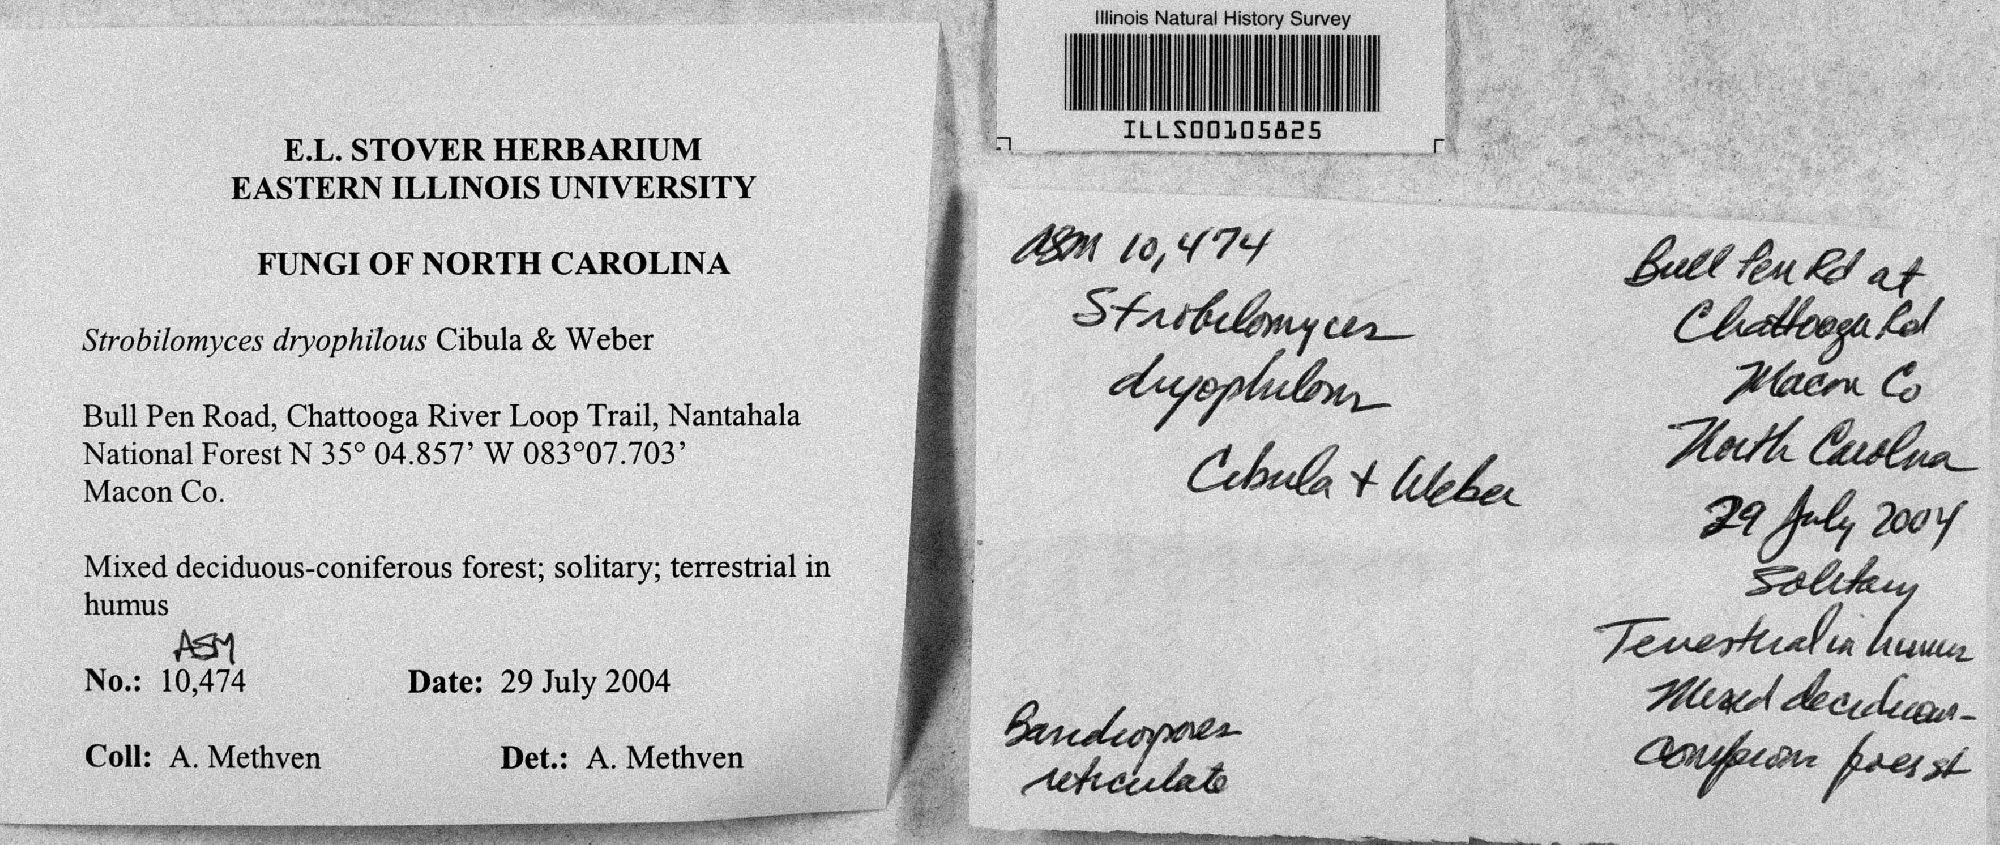 E.L. STOVER HERBARIUM
EASTERN ILLINOIS UNIVERSITY
FUNGI OF NORTH CAROLINA
Strobilomyces dryophilous Cibula & Weber
Bull Pen Road, Chattooga River Loop Trail, Nantahala
National Forest N 35° 04.857’ W 083°07.703’
Macon Co.
Mixed deciduous-coniferous forest; solitary; terrestrial in
humus
ASM
No.: 10,474 Date: 29 July 2004
Coll: A. Methven Det.: A. Methven
Illinois Natural History Survey
ILLS00105825
ASM 10,474
Strobilomyces
dryophilous
Cibula + Weber
Basidiospores
reticulate
Bull Pen Rd at
Chattooga Rd
Macon Co
North Carolina
29 July 2004
Solitary
Terrestrial in humus
Mixed deciduous-
coniferous forest